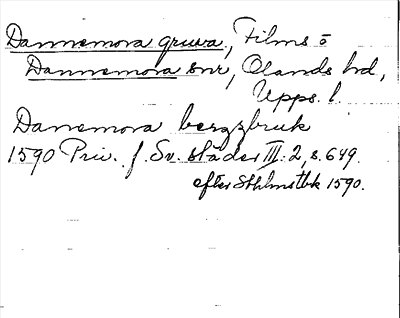 Dannemora gruva, Films o
Dannemora snr, Olands hd,
Upps. l.
Dannemora bergsbruk
1590 Priv. f. Sv. städer III: 2, s. 649.
efter Sthlmstbk 1590.